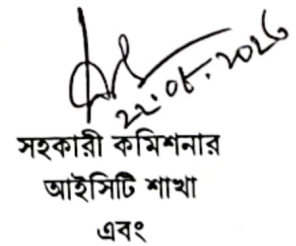 22.05.2026
সহকারী কমিশনার
আইসিটি শাখা
এবং